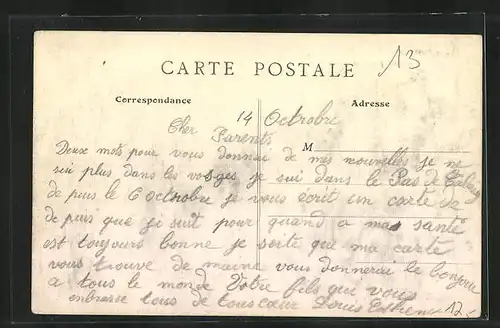 13
CARTE POSTALE
Correspondance
Adresse
14 Octrobre
Cher Parents
M
Deux mots pour vous donnai de mes nouvelles je ne
sui plus dans les vosges je sui dans le Pas de Calais
de puis le 6 octrobre je vous écrit un carte
de puis que je suit pour quand a ma santé
est toujours bonne je soite que ma carte
vous trouve de maime vous donnerai le bonjour
a tous le monde Votre fils qui vous
embrasse tous de tous cœur Louis
12,-